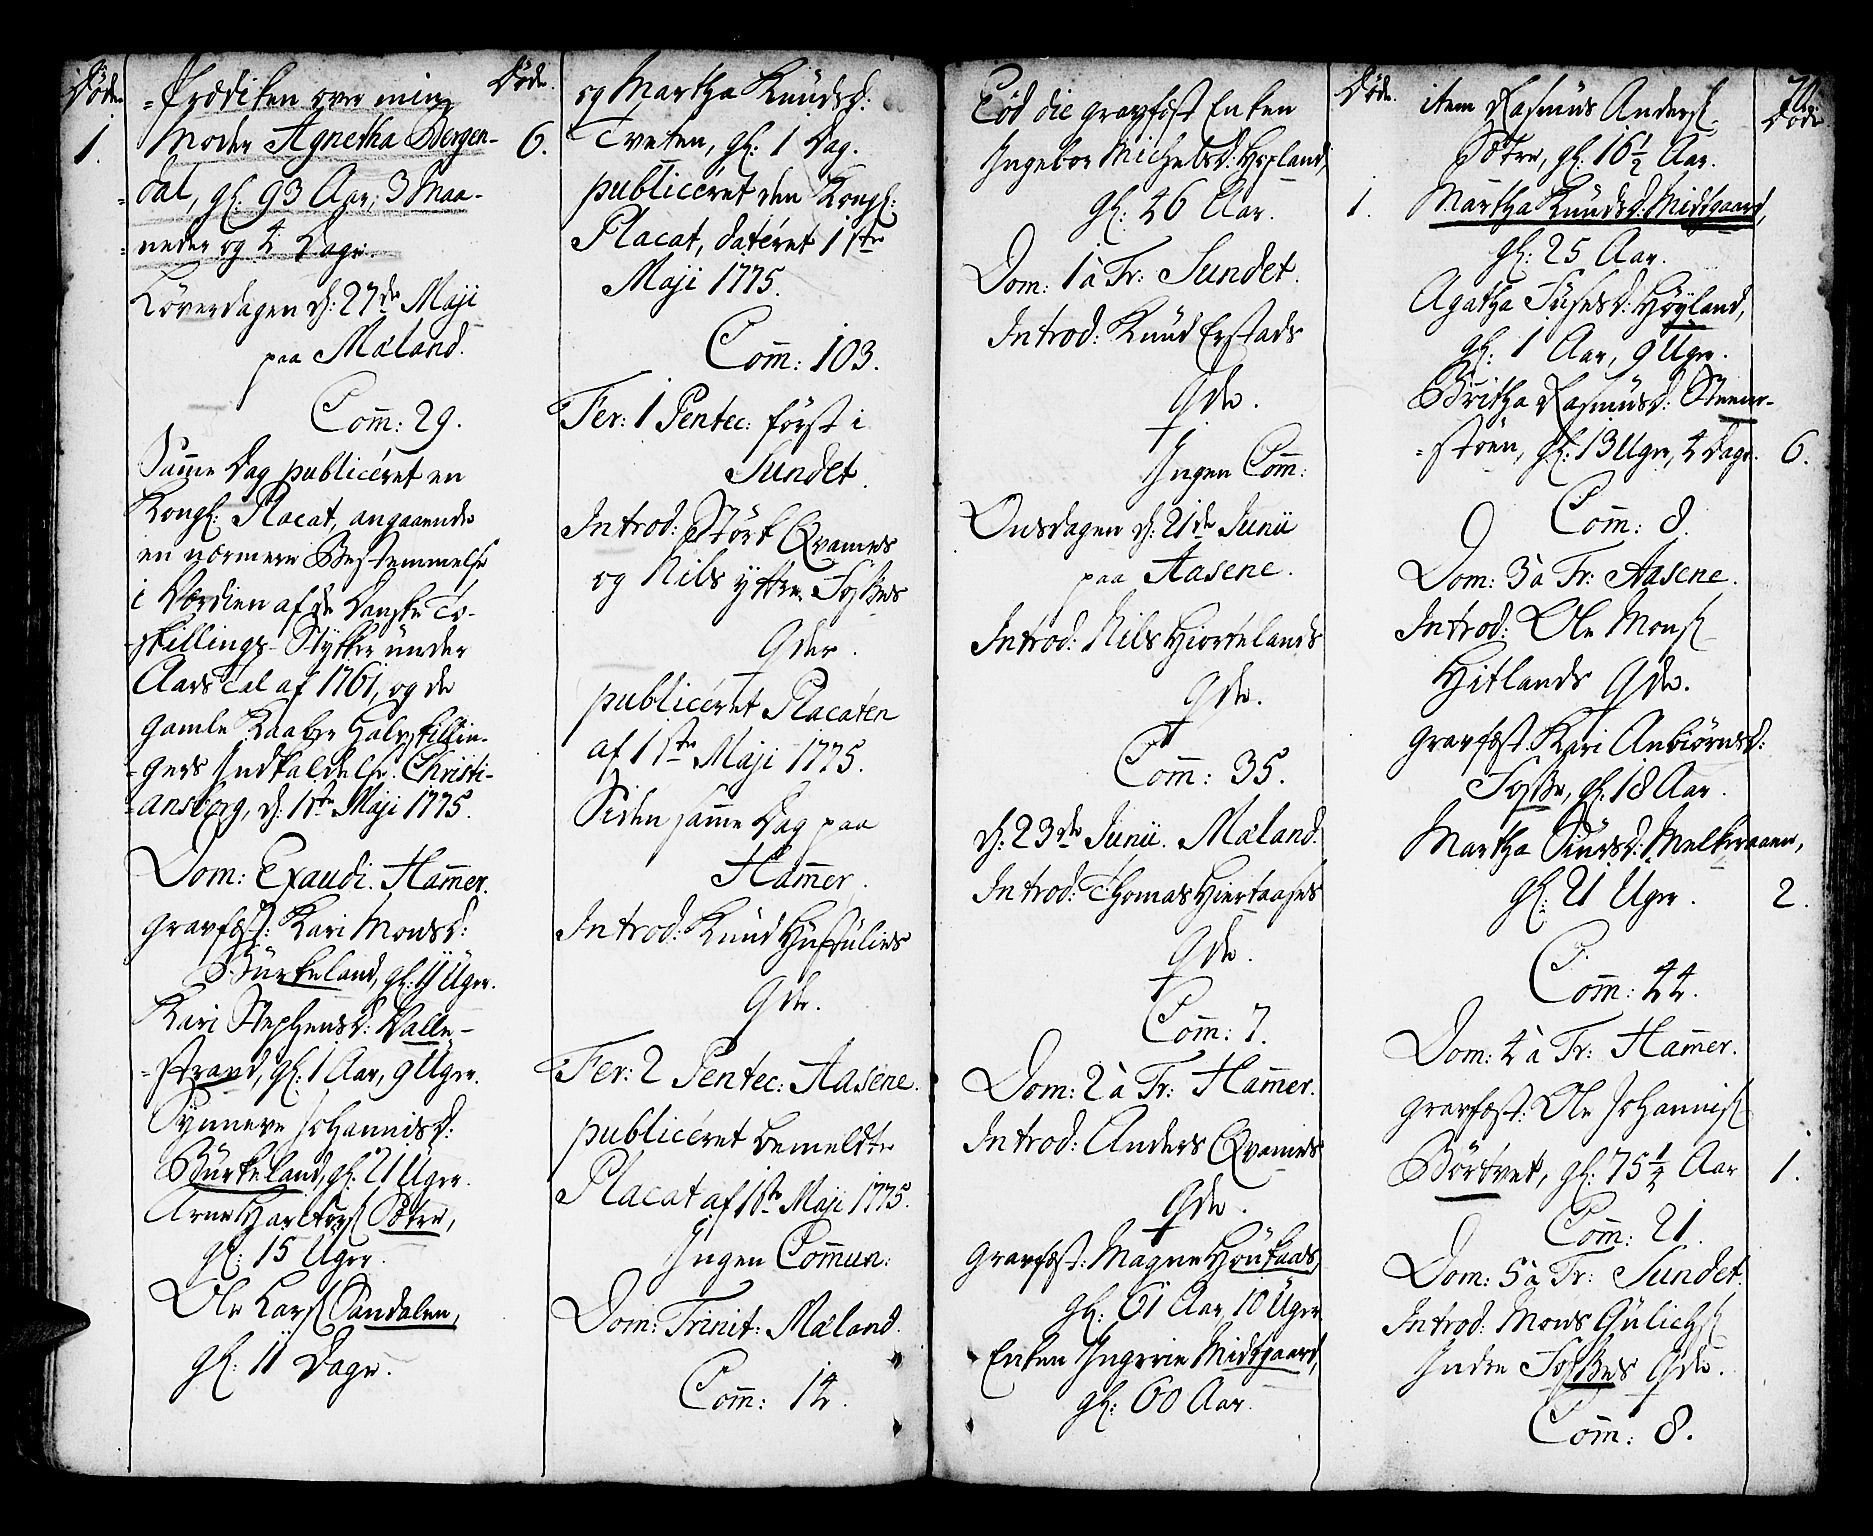 Døde.
1.
-Prædiken over min
Moder Agnetha Bergen-
-dal, gl: 93 Aar, 3 Maa-
-neder og 4 Dage.
Løverdagen d: 27de Maji
paa Mæland.
Com̄: 29.
Sam̄e Dag publicéret en
Kongl: Placat, angaaende
en nærmere Bestemmelse
i Værdien af de Danske To-
-skillings-Stykker under
Aars Tal af 1761, og de
gamle Kaaber Halvskillin-
-gers Indkaldelse. Christi-
-ansborg, d: 1ste Maji 1775.
Dom: Exaudi. Ham̄er.
gravfæst: Kari Monsd:
Bürkeland, gl: 11 Uger.
Kari Stephensd: Valle-
-strand, gl: 1 Aar, 9 Uger.
Synneve Johannisd:
Bürkeland, gl: 21 Uger.
Arne Havtors Sætre,
gl: 15 Uger.
Ole Lars Sandalen,
gl: 11 Dage.
Døde.
6.
og Martha Knudsd:
Tveten, gl: 1 Dag.
publicéret den Kongl:
Placat, datéret 1ste
Maji 1775.
Com̄: 103.
Fer: 1 Pentec: først i
Sundet.
Introd: Størk Qvam̄es
og Nils yttre Fosses
Qder.
publicéret Placaten
af 1ste Maji 1775.
Siden sam̄e Dag paa
Ham̄er.
Introd: Knud
Qde.
Fer: 2 Pentec: Aasene.
publicéret bemeldte
Placat af 1ste Maji 1775.
Ingen Com̄un:
Dom: Trinit: Mæland.
Com̄: 14.
Eod die gravfæst Enken
Ingebor Michelsd: Hopland,
gl: 46 Aar.
Dom: 1 à Tr: Sundet.
Introd: Knud Erstads
Qde.
Ingen Com̄:
Onsdagen d: 21de Junii
paa Aasene.
Introd: Nils Hiortelands
Qde.
Com̄: 35.
d: 23de Junii. Mæland.
Introd: Thomas Hiertaases
Qde.
Com̄: 7.
Dom: 2 à Tr: Ham̄er.
Introd: Anders Qvam̄es
Qde.
gravfæst: Magne Høukaas,
gl: 61 Aar 10 Uger
Enken Ingerie Midtgaard,
gl: 60 Aar.
Døde.
1.
item Rasmus Anders
Sætre, gl: 16½ Aar.
Martha Knudsd: Midtgaard,
gl: 25 Aar.
Agatha Høyland,
gl: 1 Aar, 9 Uger.
Britha Rasmusd: Steener-
-støen, gl: 13 Uger, 4 Dage.
Com̄: 8.
Dom: 3 à Tr: Aasene.
Introd: Ole Mons
Hitlands Qde.
gravfæst: Kari Anbiørnsd:
Fosse, gl: 18 Aar.
Martha Siursd: Melkeraaen,
gl: 21 Uger.
Com̄: 44.
Dom: 4 à Tr: Ham̄er.
gravfæst: Ole Johannis
Børtvet, gl: 75¼ Aar
Com̄: 21.
Dom: 5 à Tr: Sundet.
Introd: Mons Gülichs
Indre Fosses Qde.
Com̄: 8.
Døde
6.
2.
1.